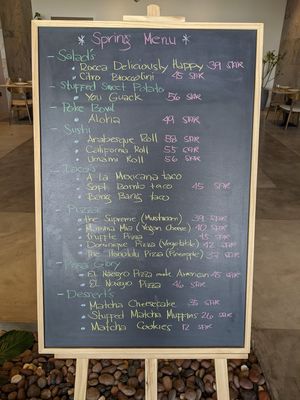 * Spring Menu *
- Salad's
• Rocca Deliciously Happy 39 SAR
• Citro Broccolini 45 SAR
- Stuffed Sweet Potato
• You Guack 56 SAR
- Poke Bowl
• Aloha 49 SAR
- Sushi
• Arabesque Roll 58 SAR
• California Roll 55 SAR
• Umami Roll 56 SAR
- Taco's
• A La Mexicana taco
• Soft Bomb taco 45 SAR
• Bang Bang taco
- Pizza
• the Supreme (Mushroom) 39 SAR
• Mamma Mia (Vegan Cheese) 40 SAR
• Truffle Pizza 45 SAR
• Dominique Pizza (Vegetable) 42 SAR
• The Honolulu Pizza (Pineapple) 37 SAR
- Glory
• El Nacryo Pizza American 45 SAR
• El Pizza 46 SAR
- Dessert's
• Matcha Cheesecake 35 SAR
• Stuffed Matcha Muffins 26 SAR
• Matcha Cookies 12 SAR